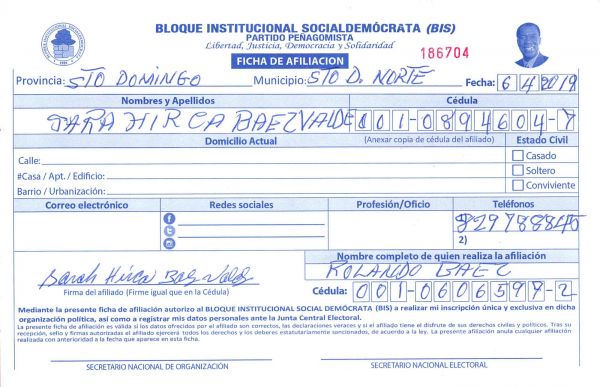 BLOQUE INSTITUCIONAL SOCIALDEMÓCRATA (BIS)
PARTIDO PEÑAGOMISTA
Libertad, Justicia, Democracia y Solidaridad
FICHA DE AFILIACION
186704
Provincia: STO DOMINGO Municipio: STO D. NORTE Fecha: 6/4/2019
Nombres y Apellidos Cédula
SARA HIRCA BAEZ VALDE 001-0894604-7
Domicilio Actual (Anexar copia de cédula del afiliado) Estado Civil
Calle: Casado
#Casa / Apt. / Edificio: Soltero
Barrio / Urbanización: Conviviente
Correo electrónico Redes sociales Profesión/Oficio Teléfonos
2)
Nombre completo de quien realiza la afiliación
ROLANDO BAEZ
Sarah Hirca Baez Valdez
Firma del afiliado (Firme igual que en la Cédula) Cédula: 001-0606597-2
Mediante la presente ficha de afiliación autorizo al BLOQUE INSTITUCIONAL SOCIAL DEMÓCRATA (BIS) a realizar mi inscripción única y exclusiva en dicha
organización política, así como a registrar mis datos personales ante la Junta Central Electoral.
La presente ficha de afiliación es válida si los datos ofrecidos por el afiliado son correctos, las declaraciones veraces y si el afiliado tiene el disfrute de sus derechos civiles y políticos. Tras su
recepción, sello y firmas autorizadas el afiliado ejercerá todos los derechos y los deberes estatutariamente sancionados, de acuerdo a la ley. La presente afiliación anula cualquier afiliación
realizada con anterioridad a la fecha que aparece en esta ficha.
SECRETARIO NACIONAL DE ORGANIZACIÓN SECRETARIO NACIONAL ELECTORAL